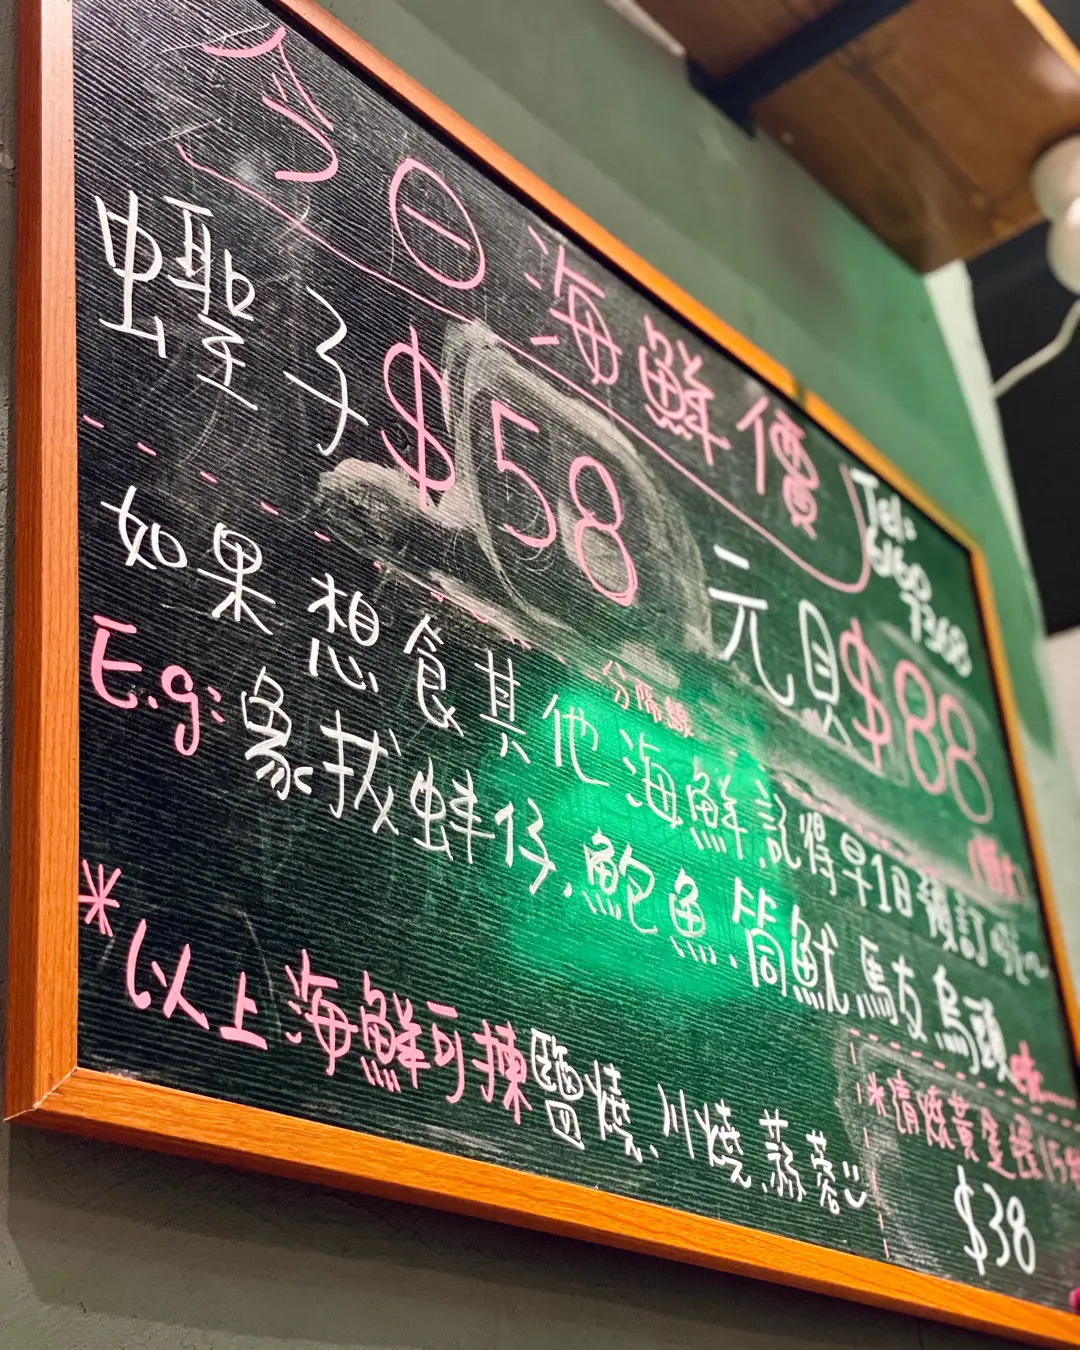 今日海鮮價
Tel:
蟶子 $58
元貝 $88
分隔線
如果想食其他海鮮記得早1日預訂
E.g: 象拔蚌仔、鮑魚、筒魷、馬友、烏頭 etc....
*以上海鮮可揀鹽燒、川燒、蒜蓉
$38